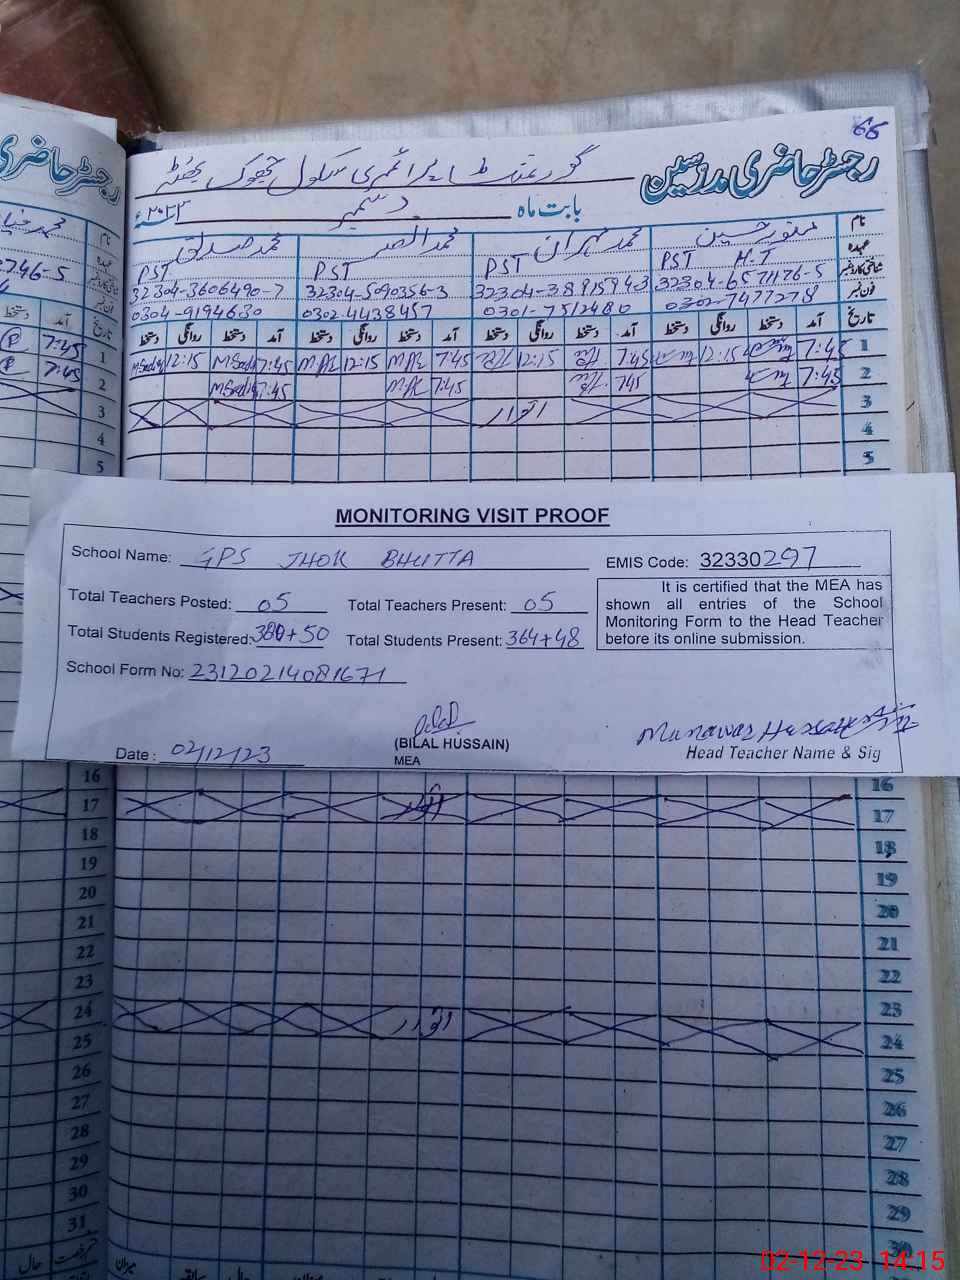 66
رجسٹر حاضری مدرسین
گورنمنٹ پرائمری سکول جھوک بھٹہ
بابت ماہ دسمبر ۲۰۲۳ء
نام منور حسین محمد مہران محمد صدیق
عہدہ PST H.T PST PST PST
شناختی کارڈ نمبر 32304-6571176-5 32304-5090356-3 32304-3606490-7
فون نمبر 0302-7477278 0301-7512480 0302-4438457 0304-9194630
تاریخ آمد دستخط روانگی دستخط آمد دستخط روانگی دستخط آمد دستخط روانگی دستخط آمد دستخط روانگی دستخط
1 7:45 12:15 7:45 12:15 7:45 12:15 7:45 12:15
2 7:45 7:45 7:45 7:45
3 اتوار
4
5
MONITORING VISIT PROOF
School Name: GPS JHOK BHUTTA EMIS Code: 32330297
Total Teachers Posted: 05 Total Teachers Present: 05
Total Students Registered: 380+50 Total Students Present: 364+48
School Form No: 23120214081671
It is certified that the MEA has
shown all entries of the School
Monitoring Form to the Head Teacher
before its online submission.
Date: 02/12/23
(BILAL HUSSAIN)
MEA
Munawar Hussain
Head Teacher Name & Sig
16
17 اتوار
18
19
20
21
22
23
24 اتوار
25
26
27
28
29
30
رجسٹر حاضری
نام
عہدہ
شناختی کارڈ نمبر 0746-5
فون نمبر
تاریخ آمد دستخط
1 7:45
2 7:45
3
4
5
16
17
18
19
20
21
22
23
24
25
26
27
28
29
30
31
02-12-23 14:15